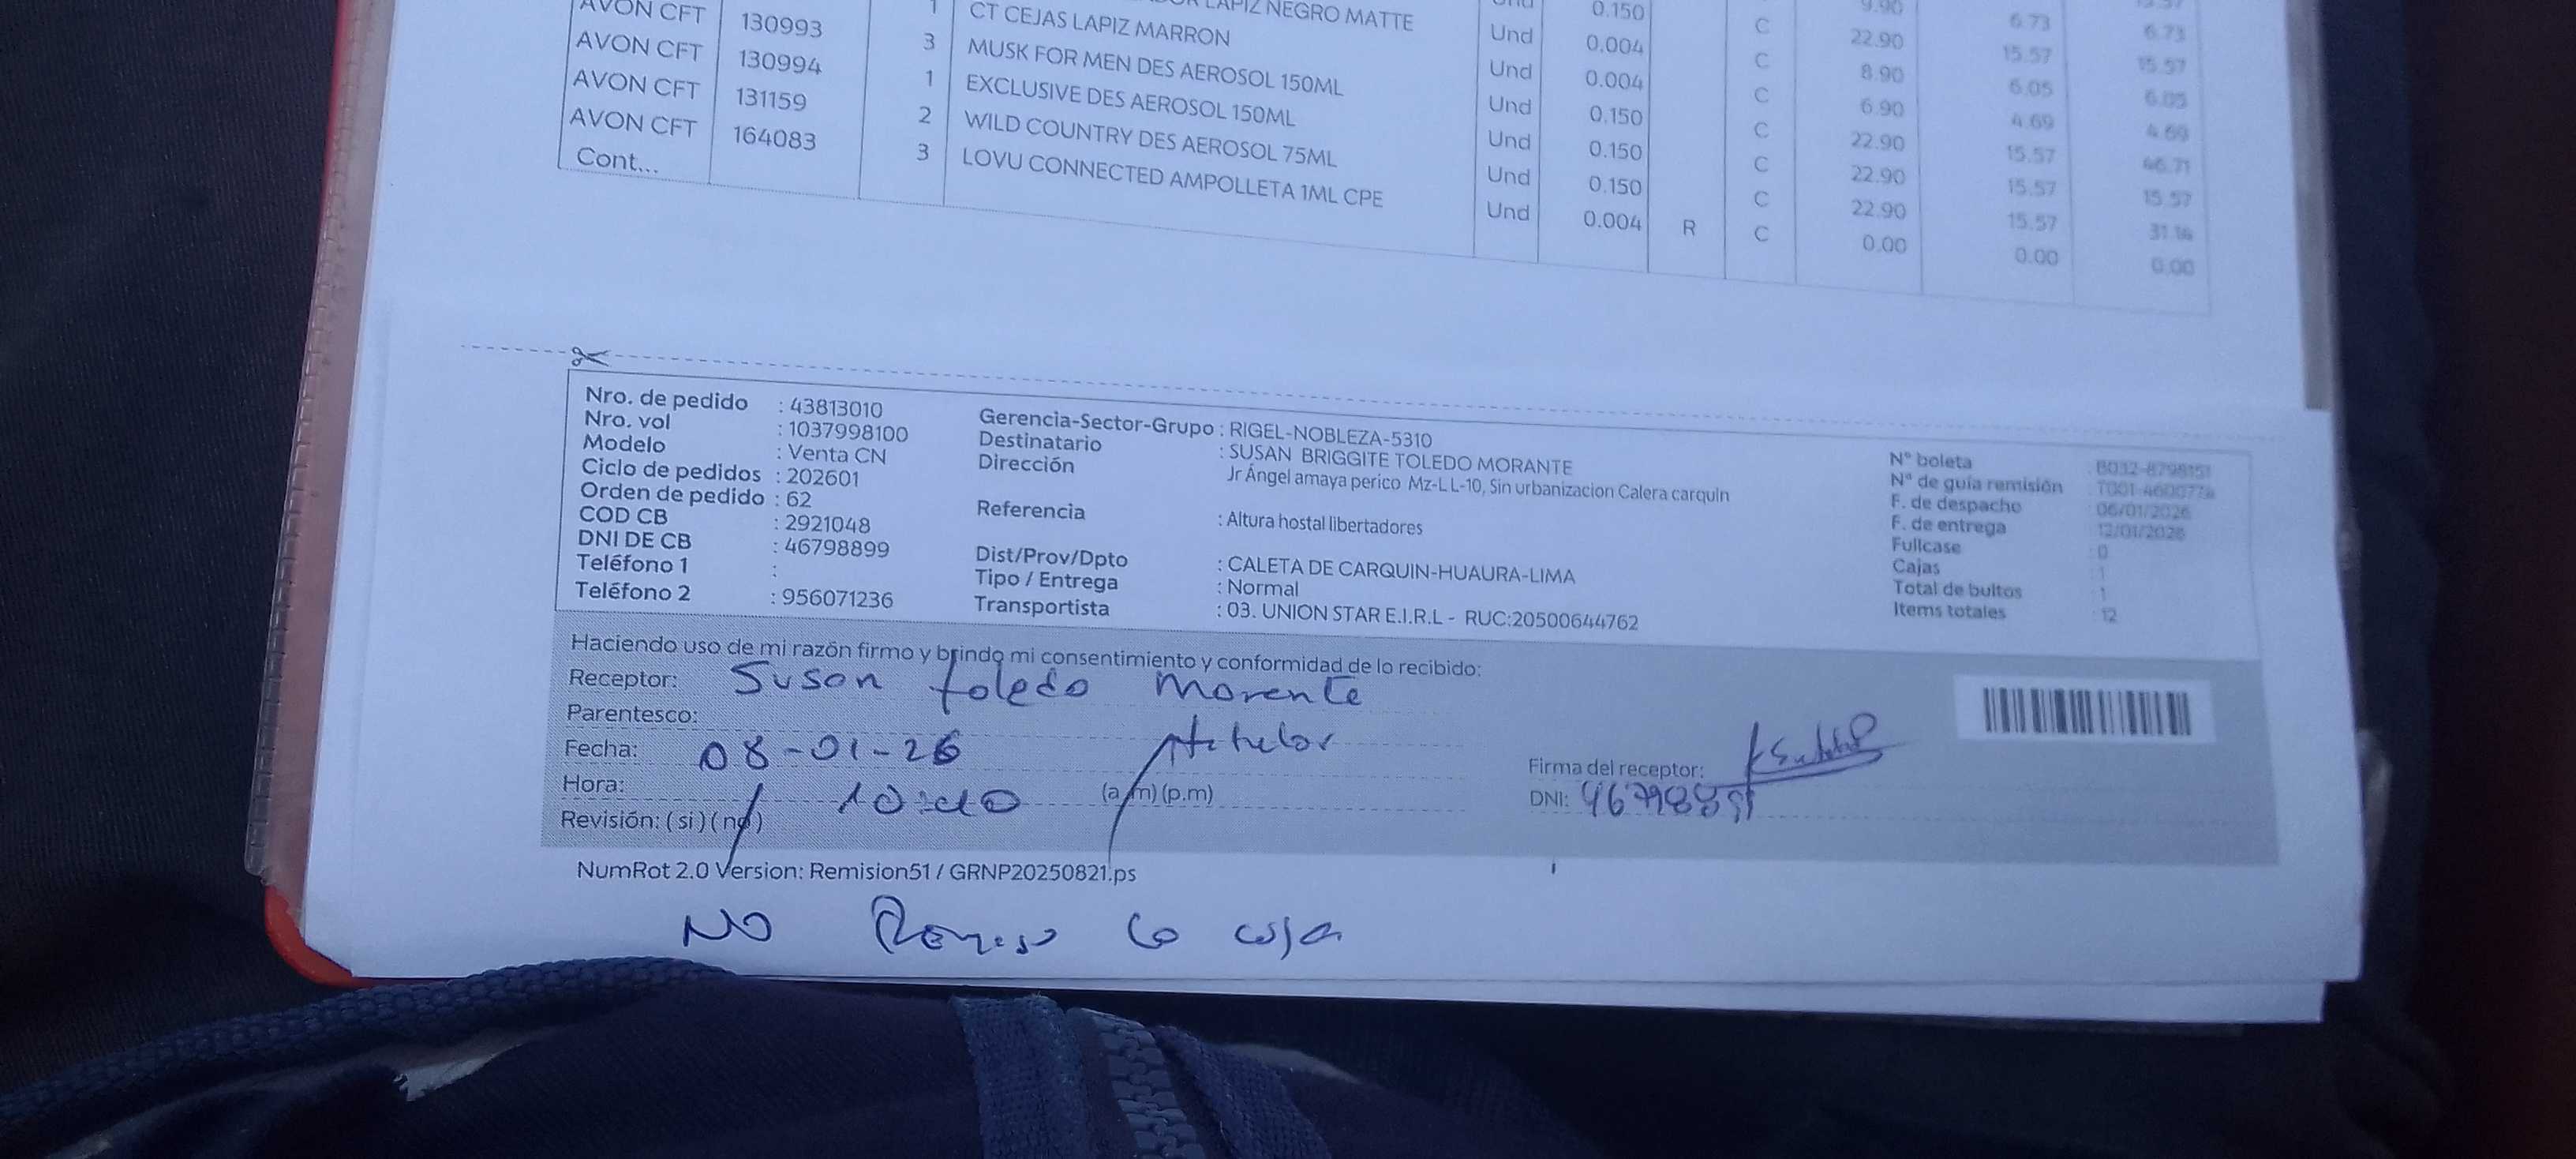 LAPIZ NEGRO MATTE Und 0.150 C 9.90 6.73 6.73
AVON CFT 130993 1 CT CEJAS LAPIZ MARRON Und 0.004 C 22.90 15.57 15.57
AVON CFT 130994 3 MUSK FOR MEN DES AEROSOL 150ML Und 0.004 C 8.90 6.05 6.05
AVON CFT 131159 1 EXCLUSIVE DES AEROSOL 150ML Und 0.150 C 6.90 4.69 4.69
AVON CFT 164083 2 WILD COUNTRY DES AEROSOL 75ML Und 0.150 C 22.90 15.57 46.71
Cont... 3 LOVU CONNECTED AMPOLLETA 1ML CPE Und 0.150 C 22.90 15.57 15.57
Und 0.004 R C 22.90 15.57 31.14
0.00 0.00 0.00
Nro. de pedido : 43813010
Nro. vol : 1037998100
Modelo : Venta CN
Ciclo de pedidos : 202601
Orden de pedido : 62
COD CB : 2921048
DNI DE CB : 46798899
Teléfono 1 :
Teléfono 2 : 956071236
Gerencia-Sector-Grupo : RIGEL-NOBLEZA-5310
Destinatario : SUSAN BRIGGITE TOLEDO MORANTE
Dirección Jr Ángel amaya perico Mz-L L-10, Sin urbanizacion Calera carquin
Referencia : Altura hostal libertadores
Dist/Prov/Dpto : CALETA DE CARQUIN-HUAURA-LIMA
Tipo / Entrega : Normal
Transportista : 03. UNION STAR E.I.R.L - RUC:20500644762
N° boleta : B032-8798151
N° de guía remisión
F. de despacho : 06/01/2026
F. de entrega : 12/01/2026
Fullcase : 0
Cajas : 1
Total de bultos : 1
Items totales : 12
Haciendo uso de mi razón firmo y brindo mi consentimiento y conformidad de lo recibido:
Receptor: Susan toledo Morante
Parentesco: titular
Fecha: 08-01-26
Hora: 10:40 (a.m) (p.m)
Revisión: ( si ) ( no )
Firma del receptor:
DNI: 46798899
NumRot 2.0 Version: Remision51 / GRNP20250821.ps
NO Reviso la caja